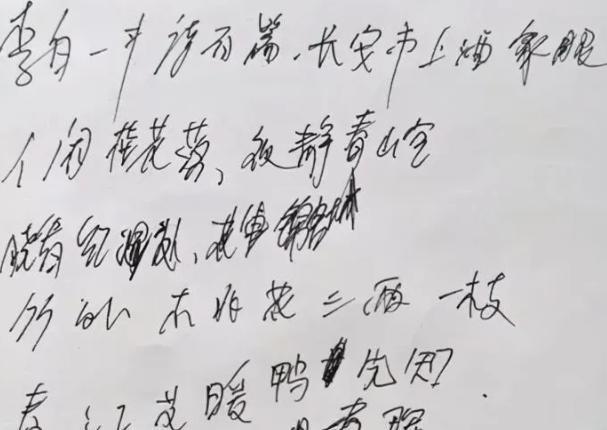 李白一斗诗百篇.长安市上酒家眠
人闲桂花落、夜静春山空
晓看红湿处、花重锦官
竹 外 花三两一枝
春江 暖鸭先知